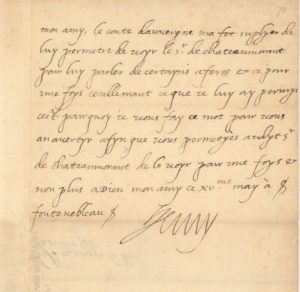 mon amy. le conte dauvergne ma fet suplyer de
luy permetre de voyr le sr. de chateaumorant
pour luy parler de certayns afères & ce pour
une foys ceullemant ce que je luy ay permys
cest pourquoy je vous fay ce mot pour vous
an avertyr afyn que vous permetyes audyt sr
de chateaumorant de le voyr pour une foys &
non plus a Dieu mon amy ce xv.me may à
fontenebleau
Henry